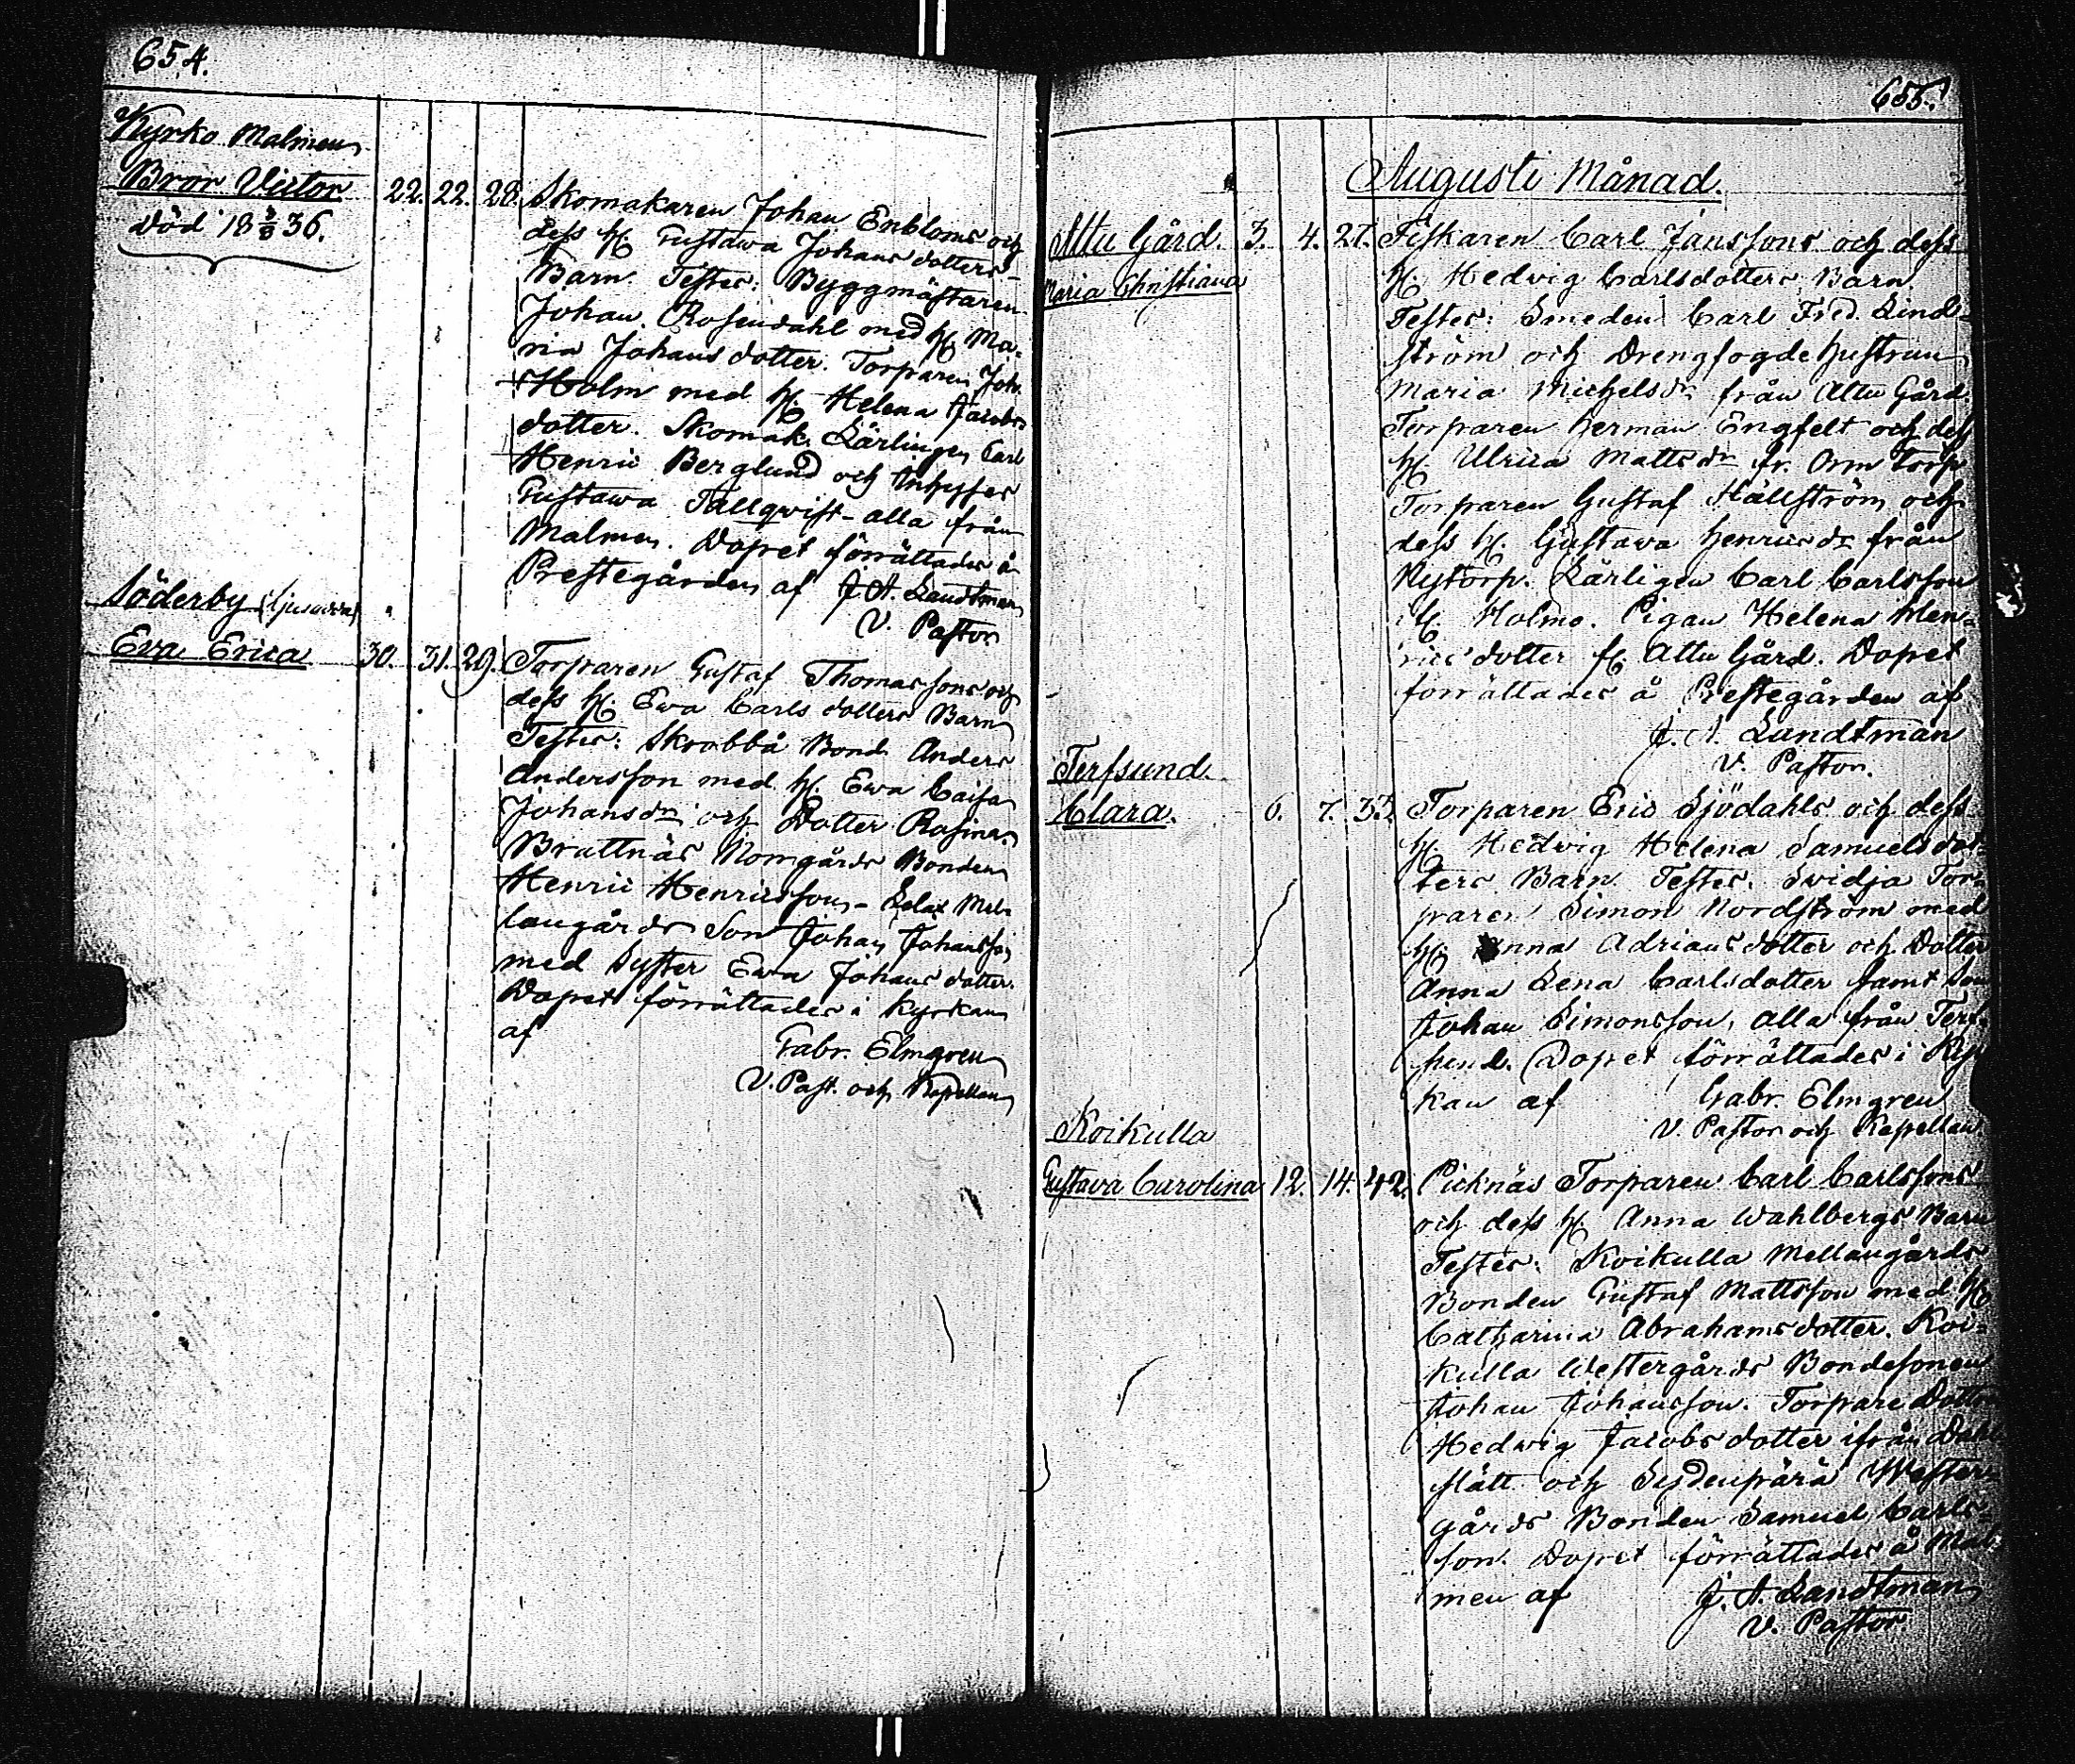 654.
Kyrko Malmen
Bror Victor 22. 22. 28. Skomakaren Johan Enbloms och
död 18 3/8 36.
dess H. Gustawa Johans dotters
Barn. Testes: Byggmästaren
Johan Rosendahl med H. Ma-
ria Johans dotter. Torparen Joh.
Holm med H. Helena Jacobs
dotter. Skomak. Lärlingen Carl
Henric Berglund och Inhyses
Gustawa Tallqwist - alla från
Malmen. Dopet förrättades å
Prestegården af J. A. Landtman
V. Pastor
Söderby
Eva Erica 30. 31. 29. Torparen Gustaf Thomassons och
dess H. Ewa Carls dotters Barn
Testes: Skrabbå Bond. Anders
Andersson med H. Ewa Caisa
Johansdr och Dotter Rosina.
Brattnäs Norrgårds Bonden
Henric Henricsson -  Mel-
langårds Son Johan Johansson
med Syster Ewa Johans dotter.
Dopet förrättades i Kyrkan
af
Gabr. Elmgren
V. Past. och Kapellan
655.
Augusti Månad.
Attu Gård. 3. 4. 27. Fiskaren Carl Janssons och dess
Maria Christiana
H. Hedvig Carlsdotters Barn.
Testes: Smeden Carl Fred. Lind-
ström och Drengfogde hustrun
Maria Michelsdr från Attu Gård.
Torparen Herman Engfelt och dess
H. Ulrica Mattsdr fr. Orm torp
Torparen Gustaf Hällström och
dess H. Gustava Henricsdr från
Nytorp. Lärligen Carl Carlsson
fr. Holmo. Pigan Helena Hen-
rics dotter fr. Attu Gård. Dopet
förrättades å Prestegården af
J. A. Landtman
V. Pastor.
Terfsund.
Clara. 6. 7. 33. Torparen Eric Sjödahls och dess
H. Hedvig Helena Samuelsdot-
ters Barn. Testes: Svidja Tor-
paren Simon Nordström med
H. Anna Adriansdotter och Dotter
Anna Lena Carlsdotter samt Son
Johan Simonsson, alla från Terf-
sund. Dopet förrättades i Kyr
kan af Gabr. Elmgren
V. Pastor och Kapellan
Koikulla
Gustava Carolina 12. 14. 42. Picknäs Torparen Carl Carlssons
och dess H. Anna Wahlbergs Barn
Testes: Koikulla Mellangårds
Bonden Gustaf Mattsson med H.
Catharina Abrahams dotter. Koi-
kulla Westergårds Bondesonen
Johan Johansson. Torpare Dotter
Hedwig Jacobs dotter ifrån Dahl
slätt och Sydenpärä Wester
gårds Bonden Samuel Carls-
son. Dopet förrättades å Mal-
men af J. A. Landtman
V. Pastor.